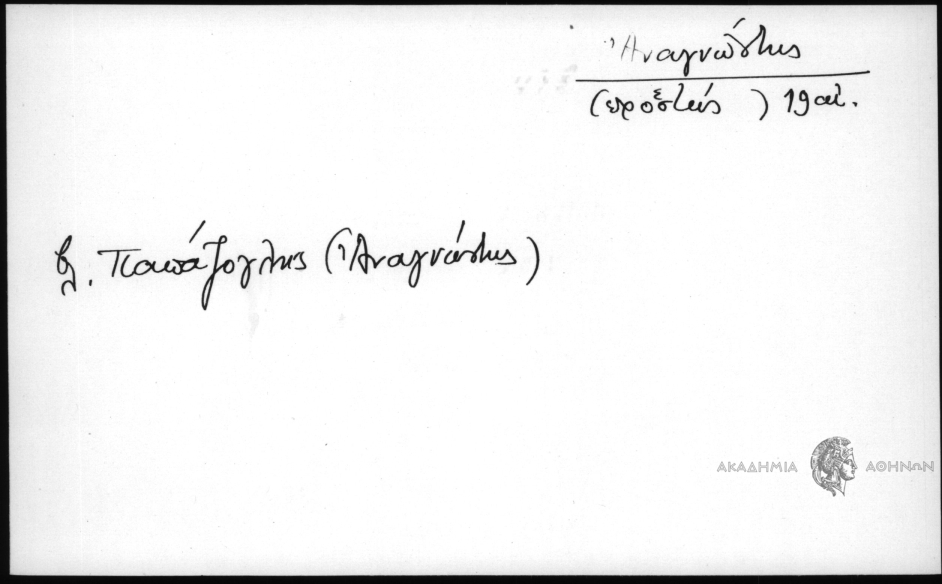 Ἀναγνώστης
(προεστώς ) 19 αἰ.
βλ. Παπάζογλης (Ἀναγνώστης)
ΑΚΑΔΗΜΙΑ ΑΘΗΝΩΝ